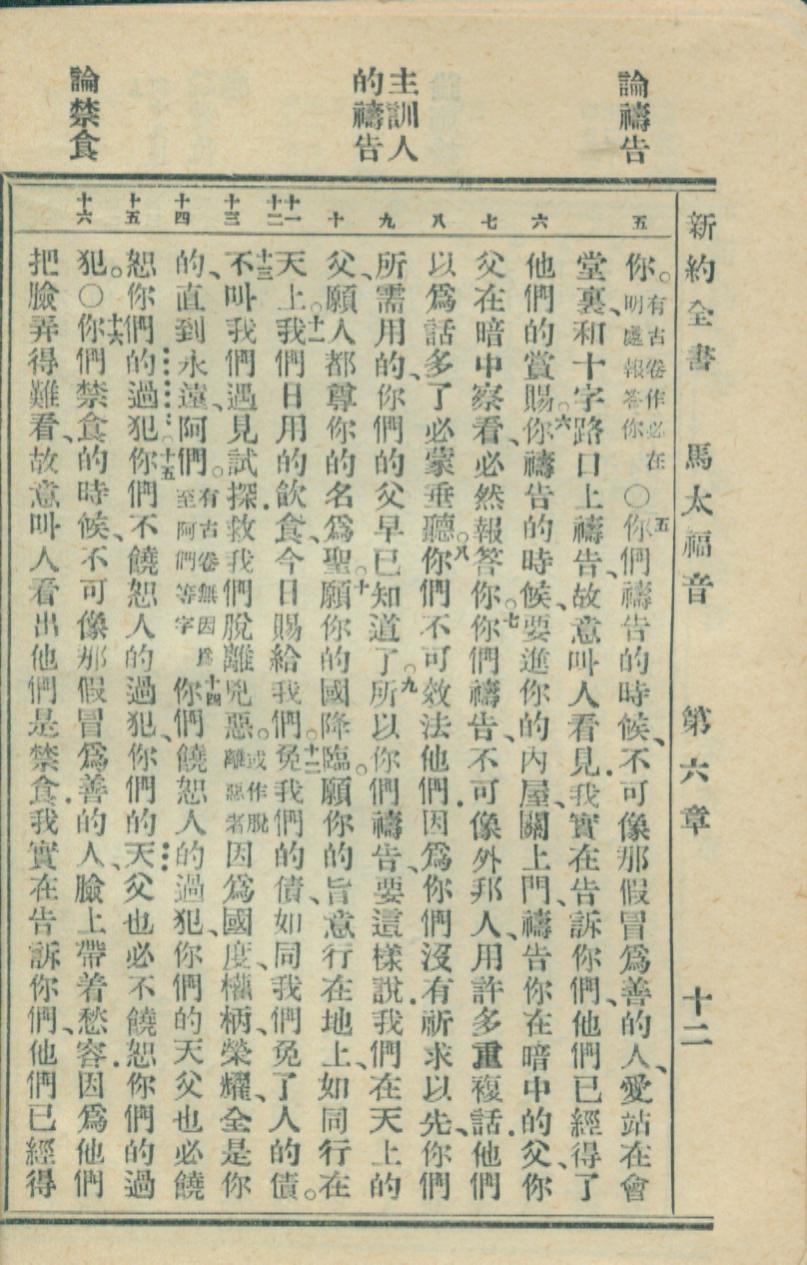 論禱告
主訓人
的禱告
論禁食
新約全書 馬太福音 第六章 十二
五 六 七 八 九 十 十一 十二 十三 十四 十五 十六
你。有古卷作必在明處報答你 〇五你們禱告的時候、不可像那假冒爲善的人、愛站在會
堂裏、和十字路口上禱告、故意叫人看見.我實在告訴你們、他們已經得了
他們的賞賜。六你禱告的時候、要進你的內屋、關上門、禱告你在暗中的父、你
父在暗中察看、必然報答你。七你們禱告、不可像外邦人、用許多重複話.他們
以爲話多了必蒙垂聽。八你們不可效法他們.因爲你們沒有祈求以先、你們
所需用的、你們的父早已知道了。九所以你們禱告、要這樣說.我們在天上的
父、願人都尊你的名爲聖。十願你的國降臨。願你的旨意行在地上、如同行在
天上。十一我們日用的飲食、今日賜給我們。十二免我們的債、如同我們免了人的債。
十三不叫我們遇見試探.救我們脫離兇惡。或作脫離惡者因爲國度、權柄、榮耀、全是你
的、直到永遠、阿們。有古卷無因爲至阿們等字 十四你們饒恕人的過犯、你們的天父也必饒
恕你們的過犯.十五你們不饒恕人的過犯、你們的天父也必不饒恕你們的過
犯。〇十六你們禁食的時候、不可像那假冒爲善的人、臉上帶着愁容.因爲他們
把臉弄得難看、故意叫人看出他們是禁食.我實在告訴你們、他們已經得